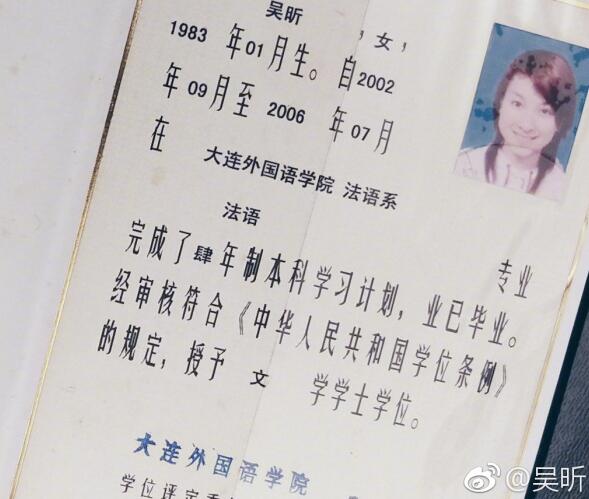 吴昕 ，女，
1983 年01月生。自2002
年09月至 2006 年07月
在 大连外国语学院 法语系
法语 专业
完成了肆年制本科学习计划，业已毕业。
经审核符合《中华人民共和国学位条例》
的规定，授予 文 学学士学位。
大连外国语学院
学位评定委
@吴昕